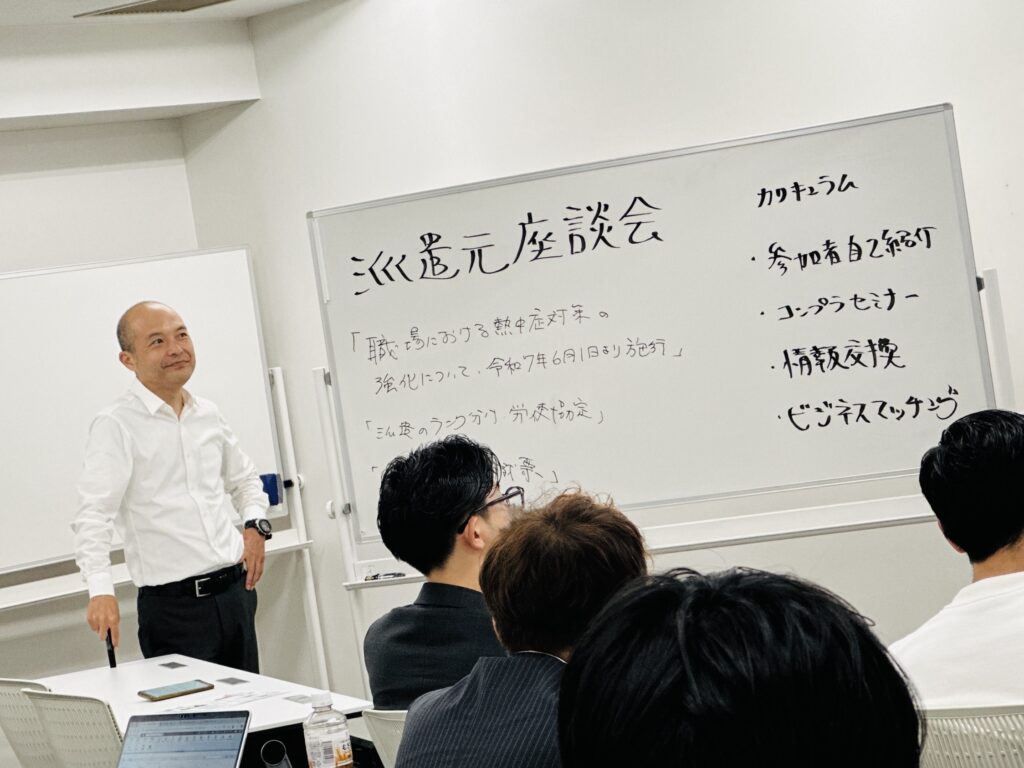 派遣元座談会
「職場における熱中症対策の
強化について、令和7年6月1日より施行」
「派遣のランク分け、労使協定」
カリキュラム
・参加者自己紹介
・コンプラセミナー
・情報交換
・ビジネスマッチング